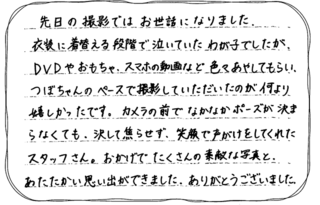 先日の撮影ではお世話になりました。
衣装に着替える段階で泣いていたわが子でしたが、
DVDやおもちゃ、スマホの動画など色々あやしてもらい、
つぼちゃんのペースで撮影していただいたのが何より
嬉しかったです。カメラの前でなかなかポーズが決ま
らなくても、決して焦らせず、笑顔で声がけをしてくれた
スタッフさん。おかげでたくさんの素敵な写真と、
あたたかい思い出ができました。ありがとうございました。